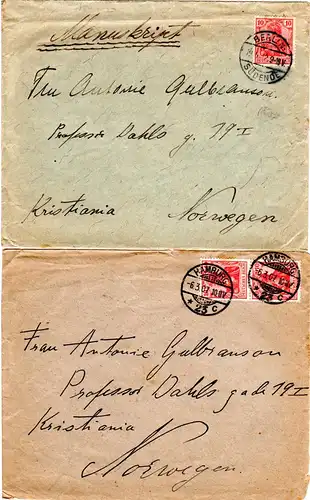 Manuskript
10 10
BERLIN
SÜDENDE
Fru Antonie Gulbranson
Professor Dahls g. 19 I
Kristiania
Norwegen
HAMBURG
-6.3.07.10.11V
* 23 C
HAMBURG
-6.3.07
* 23 C
Frau Antonie Gulbranson
Professor Dahls gade 19 I
Kristiania
Norwegen.